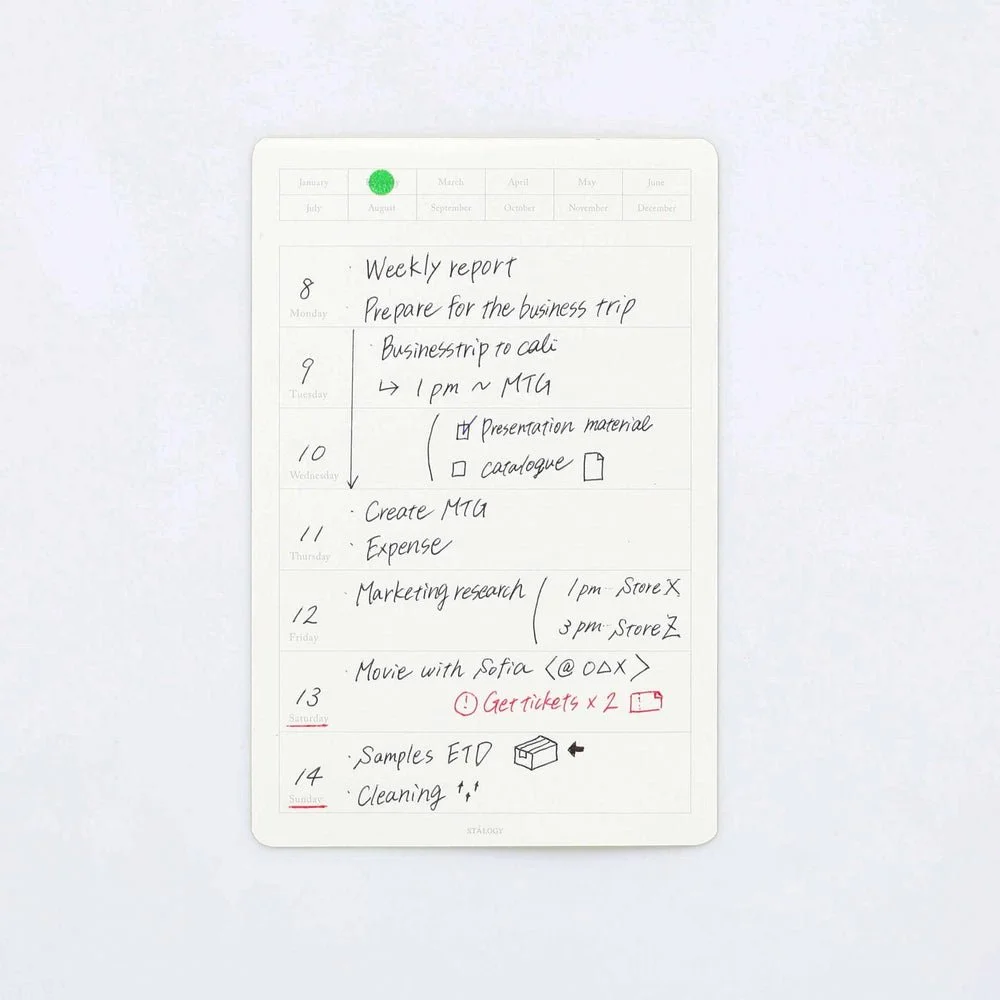 January March April May June
July August September October November December
· Weekly report
8
Monday
· Prepare for the business trip
· Businesstrip to cali
9
Tuesday
↳ 1 pm ~ MTG
☑ Presentation material
10
Wednesday
☐ catalogue
· Create MTG
11
Thursday
· Expense
· Marketing research
12
Friday
1 pm - Store X
3 pm - Store Z
· Movie with Sofia <@ O△X>
13
Saturday
! Get tickets x 2
· Samples ETD
14
Sunday
· Cleaning
STÁLOGY